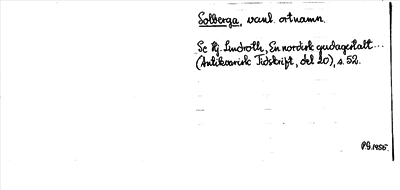 Solberga, vanl. ortnamn.
Se Hj. Lindroth, En nordisk gudagestalt...
(Antikvarisk Tidskrift, del 20), s. 52.
P.G. 1955.